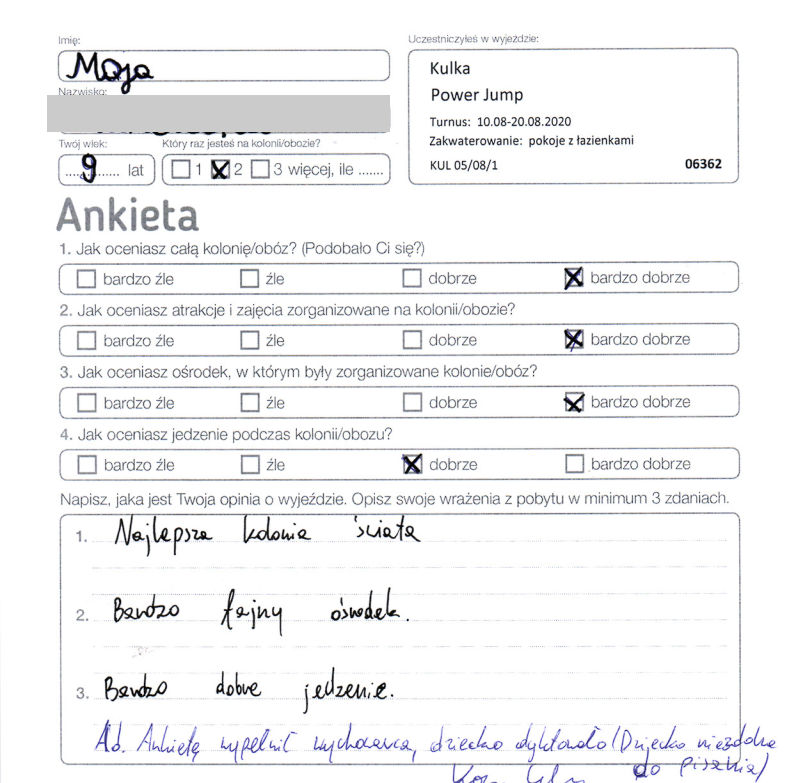 Imię:
Maja
Nazwisko:
Twój wiek:
9 lat
Który raz jesteś na kolonii/obozie?
1 2 3 więcej, ile .......
Uczestniczyłeś w wyjeździe:
Kulka
Power Jump
Turnus: 10.08-20.08.2020
Zakwaterowanie: pokoje z łazienkami
KUL 05/08/1 06362
Ankieta
1. Jak oceniasz całą kolonię/obóz? (Podobało Ci się?)
bardzo źle źle dobrze bardzo dobrze
2. Jak oceniasz atrakcje i zajęcia zorganizowane na kolonii/obozie?
bardzo źle źle dobrze bardzo dobrze
3. Jak oceniasz ośrodek, w którym były zorganizowane kolonie/obóz?
bardzo źle źle dobrze bardzo dobrze
4. Jak oceniasz jedzenie podczas kolonii/obozu?
bardzo źle źle dobrze bardzo dobrze
Napisz, jaka jest Twoja opinia o wyjeździe. Opisz swoje wrażenia z pobytu w minimum 3 zdaniach.
1. Najlepsza kolonia świata
2. Bardzo fajny ośrodek.
3. Bardzo dobre jedzenie.
Ad. Ankietę wypełnił wychowawca, dziecko dyktowało (Dziecko niezdolne
do pisania)